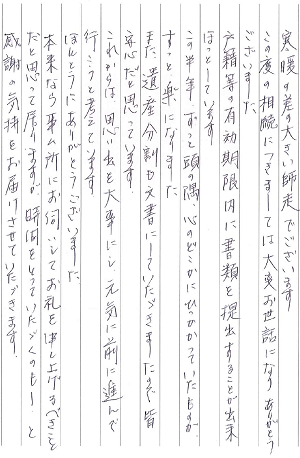 寒暖の差の大きい師走でございます
この度の相続につきましては大変お世話になりありがとう
ございました
戸籍等の有効期限内に書類を提出することが出来
ほっとしています
この半年ずっと頭の隅、心のどこかにひっかかっていたものが
すっと楽になりました
また遺産分割も文書にしていただきましたので皆
安心だと思っています
これからは思い出を大事にし、元気に前に進んで
行こうと考えています
ほんとうにありがとうございました
本来なら事ム所にお伺いしてお礼を申し上げるべきこと
だと思って居りますが時間をとっていただくのも…と
感謝の気持をお届けさせていただきます。